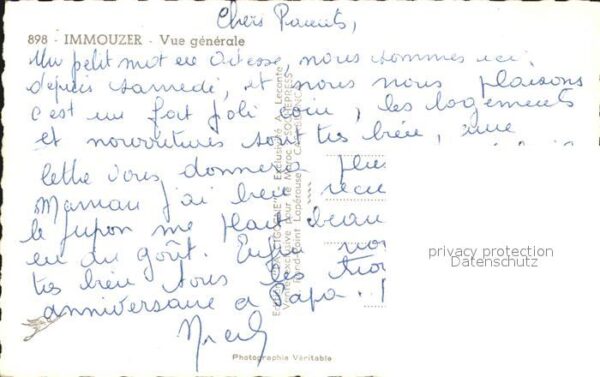 Chers Parents,
898 - IMMOUZER - Vue générale
Un petit mot en vitesse, nous sommes ici
depuis samedi, et nous nous plaisons
c'est un fort joli coin, les logements
et nourritures sont très bien, une
lettre vous donnera plus
Maman j'ai bien recu
le jupon me plait beau
eu du goût. Enfin nou
très bien tous les troi
anniversaire a Papa.
Photographie Véritable
privacy protection
Datenschutz
Exclusivité A. Leconte
Vente exclusive pour le Maroc SOCHEPRESS
Rond-Point Lapérouse CASABLANCA